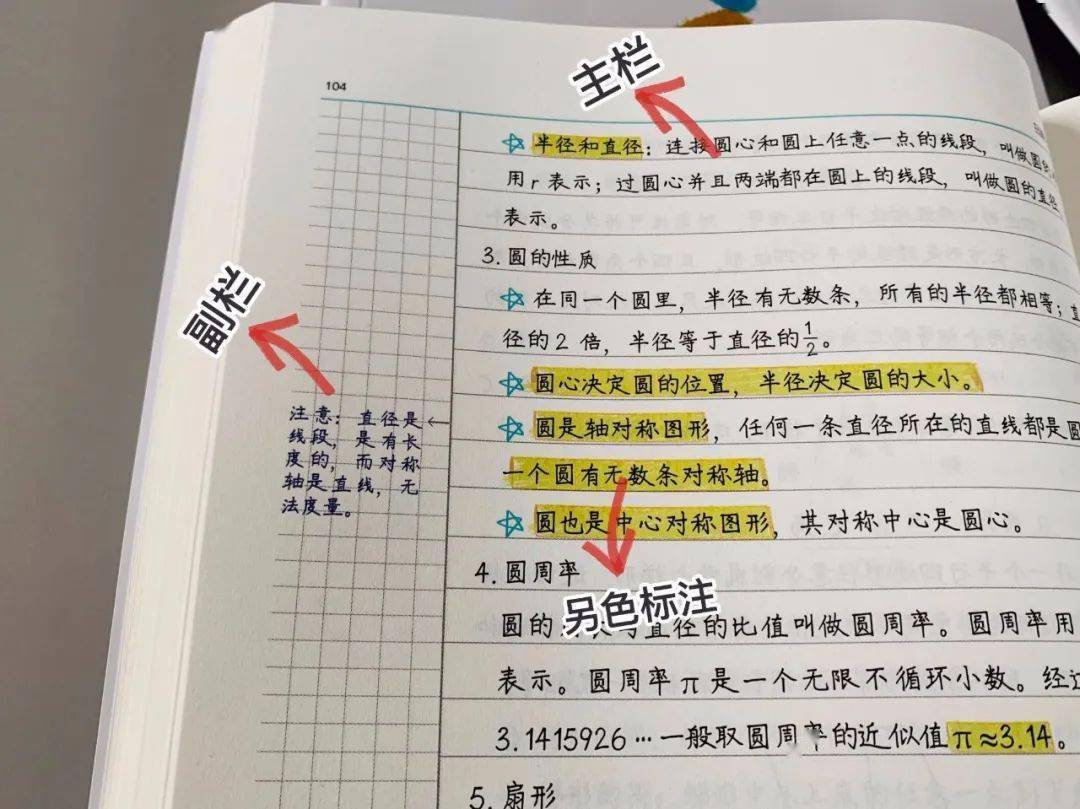 104
主栏
☆ 半径和直径：连接圆心和圆上任意一点的线段，叫做圆
用r表示；过圆心并且两端都在圆上的线段，叫做圆的直径
表示。
3.圆的性质
☆ 在同一个圆里，半径有无数条，所有的半径都相等；直
径的2倍，半径等于直径的1/2。
☆ 圆心决定圆的位置，半径决定圆的大小。
☆ 圆是轴对称图形，任何一条直径所在的直线都是圆
一个圆有无数条对称轴。
☆ 圆也是中心对称图形，其对称中心是圆心。
4.圆周率
圆的 与直径的比值叫做圆周率。圆周率用
表示。圆周率π是一个无限不循环小数。经过
3.1415926…一般取圆周率的近似值π≈3.14。
5.扇形
副栏
注意：直径是←
线段，是有长
度的，而对称
轴是直线，无
法度量。
另色标注